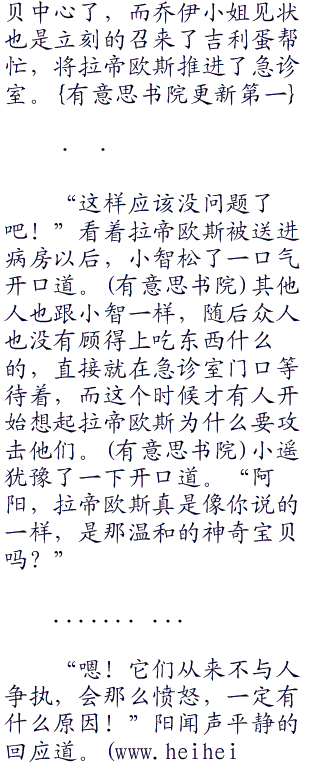 贝中心了，而乔伊小姐见状
也是立刻的召来了吉利蛋帮
忙，将拉帝欧斯推进了急诊
室。{有意思书院更新第一}
. .
“这样应该没问题了
吧！”看着拉帝欧斯被送进
病房以后，小智松了一口气
开口道。(有意思书院)其他
人也跟小智一样，随后众人
也没有顾得上吃东西什么
的，直接就在急诊室门口等
待着，而这个时候才有人开
始想起拉帝欧斯为什么要攻
击他们。(有意思书院)小遥
犹豫了一下开口道。“阿
阳，拉帝欧斯真是像你说的
一样，是那温和的神奇宝贝
吗？”
....... ...
“嗯！它们从来不与人
争执，会那么愤怒，一定有
什么原因！”阳闻声平静的
回应道。(www.heihei